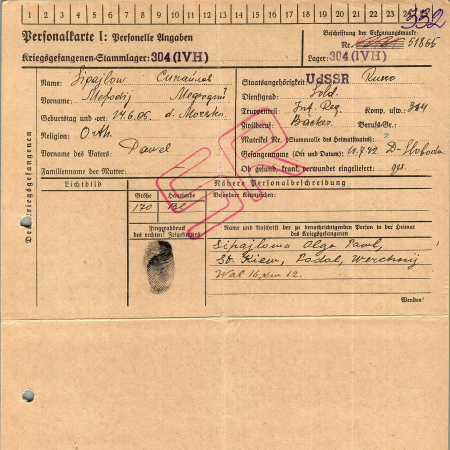 1 2 3 4 5 6 7 8 9 10 11 12 13 14 15 16 17 18 19 20 21 22 23 24 25
532
Personalkarte I: Personelle Angaben
Kriegsgefangenen-Stammlager: 304 (IVH)
Beschriftung der Erkennungsmarke:
Nr. 51866
Lager: 304 (IVH)
Des Kriegsgefangenen
Name: Sipajlow Сипайлов
Vorname: Mefodij Мефодий
Geburtstag und -ort: 24.6.05.
Religion: Orth.
Vorname des Vaters: Pawel
Familienname der Mutter:
Staatsangehörigkeit: UdSSR Russe
Dienstgrad: Sold.
Truppenteil: Inf. Reg. Komp. usw.: 304
Zivilberuf: Bäcker. Berufs-Gr.:
Matrikel Nr. (Stammrolle des Heimatstaates):
Gefangennahme (Ort und Datum): D-Sloboda
Ob gesund, krank, verwundet eingeliefert: ges.
SR
Lichtbild
Nähere Personalbeschreibung
Größe
Haarfarbe
Besondere Kennzeichen:
170
Fingerabdruck
des rechten! Zeigefingers
Name und Anschrift der zu benachrichtigenden Person in der Heimat
des Kriegsgefangenen
Sipajlowa Olga Pawl,
St. Kiew, Podol, Werchnij
Wal 16, kw 12.
Wenden!